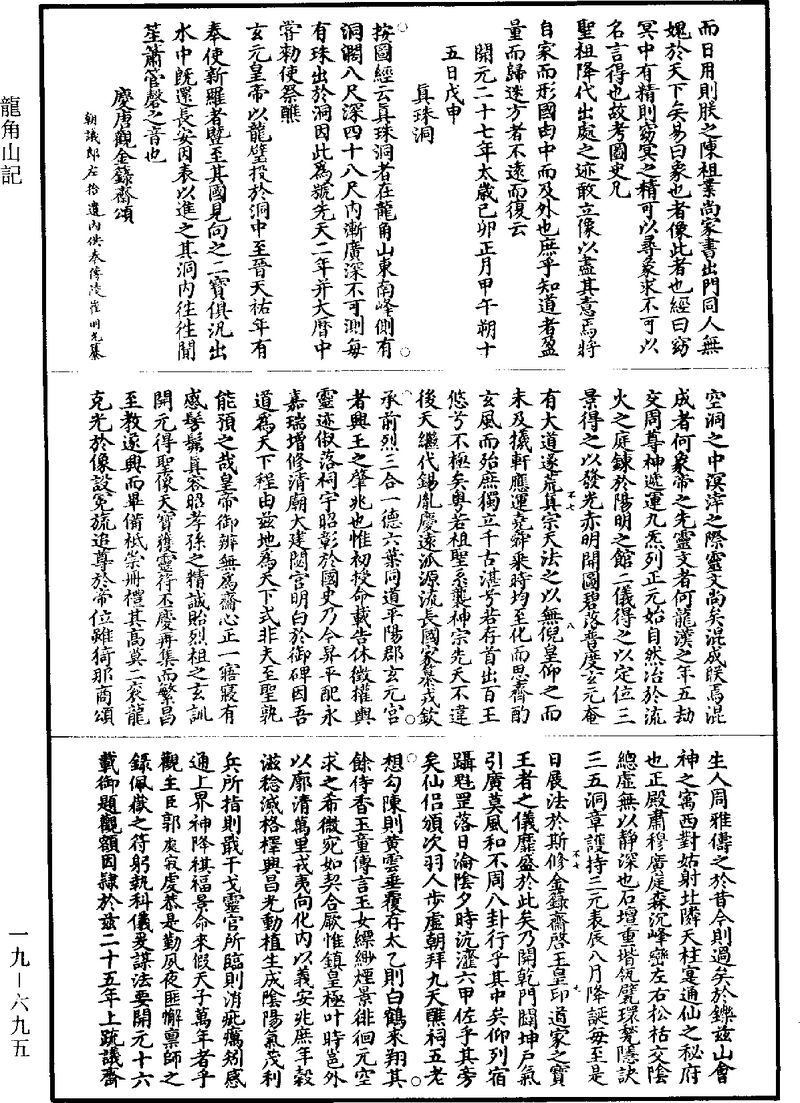 龍角山記
而日用則朕之陳祖業尚家書出門同人無
媿於天下矣易曰象也者像此者也經曰窈
冥中有精則窈冥之精可以尋象求不可以
名言得也故考圖史凡
聖祖降代出處之迹敢立像以盡其意焉將
自家而形國由中而及外也庶乎知道者盈
量而歸迷方者不遠而復云
開元二十七年太歲己卯正月甲午朔十
五日戊申
真珠洞
按圖經云真珠洞者在龍角山東南峰側有
洞濶八尺深四十八尺內漸廣深不可測每
有珠出於洞因此為號先天二年并大曆中
甞勅使祭醮
玄元皇帝以龍璧投於洞中至晉天祐年有
奉使新羅者暨至其國見向之二寶俱汎出
水中既還長安因表以進之其洞內往往聞
笙簫管磬之音也
慶唐觀金籙齋頌
朝議郎左拾遺內供奉博陵崔明允纂
空洞之中溟涬之際靈文尚矣混成朕焉混
成者何象帝之先靈文者何龍漢之年五劫
交周尊神遞運九炁列正元始自然冶於流
火之庭鍊於陽明之館二儀得之以定位三
景得之以發光赤明開圖碧落普度玄元奄
有大道遂荒真宗天法之以無倪皇仰之而
未及摄軒應運堯舜乘時均至化而思齊酌
玄風而殆庶獨立千古湛兮若存首出百王
悠兮不極矣粵若祖聖系襲神宗先天不違
後天繼代錫胤慶遠派源流長國家纂戎欽
承前烈三合一德六葉同道平陽郡玄元宮
者興王之肇兆也惟初授命載告休徵權輿
靈迹俶落祠宇昭彰於國史乃今昇平配永
嘉瑞增修清廟大建閟宮明白於御碑因吾
道為天下程由兹地為天下式非夫至聖孰
能預之哉皇帝御辨無為齋心正一寤寐有
感髣髴真容昭孝孫之精誠貽烈祖之玄訓
開元得聖像天寶獲靈符丕慶再集而繁昌
至教遂興而畢備祇崇冊禮其高莫二衮龍
克光於像設冕旒追尊於帝位雖猗那商頌
生人周雅儔之於昔今則過矣於鑠兹山會
神之寓西對姑射北隣天柱寔通仙之秘府
也正殿肅穆廣庭森沉峰巒左右松栝交陰
總虛無以靜深也石壇重堦瓴甓環甃隱訣
三五洞章護持三元表辰八月降誕每至是
日展法於斯修金籙齋啓玉皇印道家之寶
王者之儀靡盛於此矣乃開乾門闢坤戶氣
引廣莫風和不周八卦行乎其中矣仰列宿
躡魁罡落日淪陰夕時沆瀣六甲佐乎其旁
矣仙侶頒次羽人步虛朝拜九天醮祠五老
想勾陳則黃雲垂覆存太乙則白鶴來翔其
餘侍香玉童傳言玉女縹緲煙景徘徊元空
求之希微宛如契合厥惟鎮皇極叶時邕外
以廓清萬里戎夷向化內以義安兆庶年穀
滋稔滅格擇興昌光動植生成陰陽氣茂利
兵所指則戢干戈靈官所臨則消疵癘剡感
通上界神降祺福景命來假天子萬年者乎
觀主臣郭處寂虔恭是勤夙夜匪懈稟師之
錄佩嶽之符躬執科儀爰謀法要開元十六
載御題觀額因隸於兹二十五年上疏議齋
一九—六九五